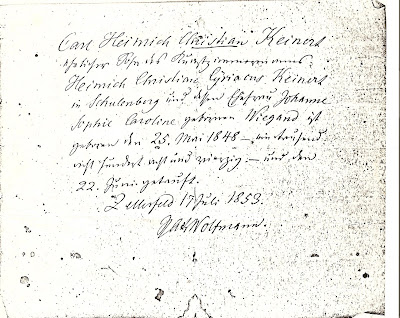 Carl Heinrich Christian Keinert
ehelicher Sohn des
Heinrich Christian Cyriacus Keinert
in Schulenberg und dessen Ehefrau Johanne
Sophie Caroline geborenen Wiegand ist
geboren den 25. Mai 1848 – ein tausend
acht hundert acht und vierzig – und den
22. Juni getauft.
Zellerfeld 17 Juli 1853.
Wolfmann.